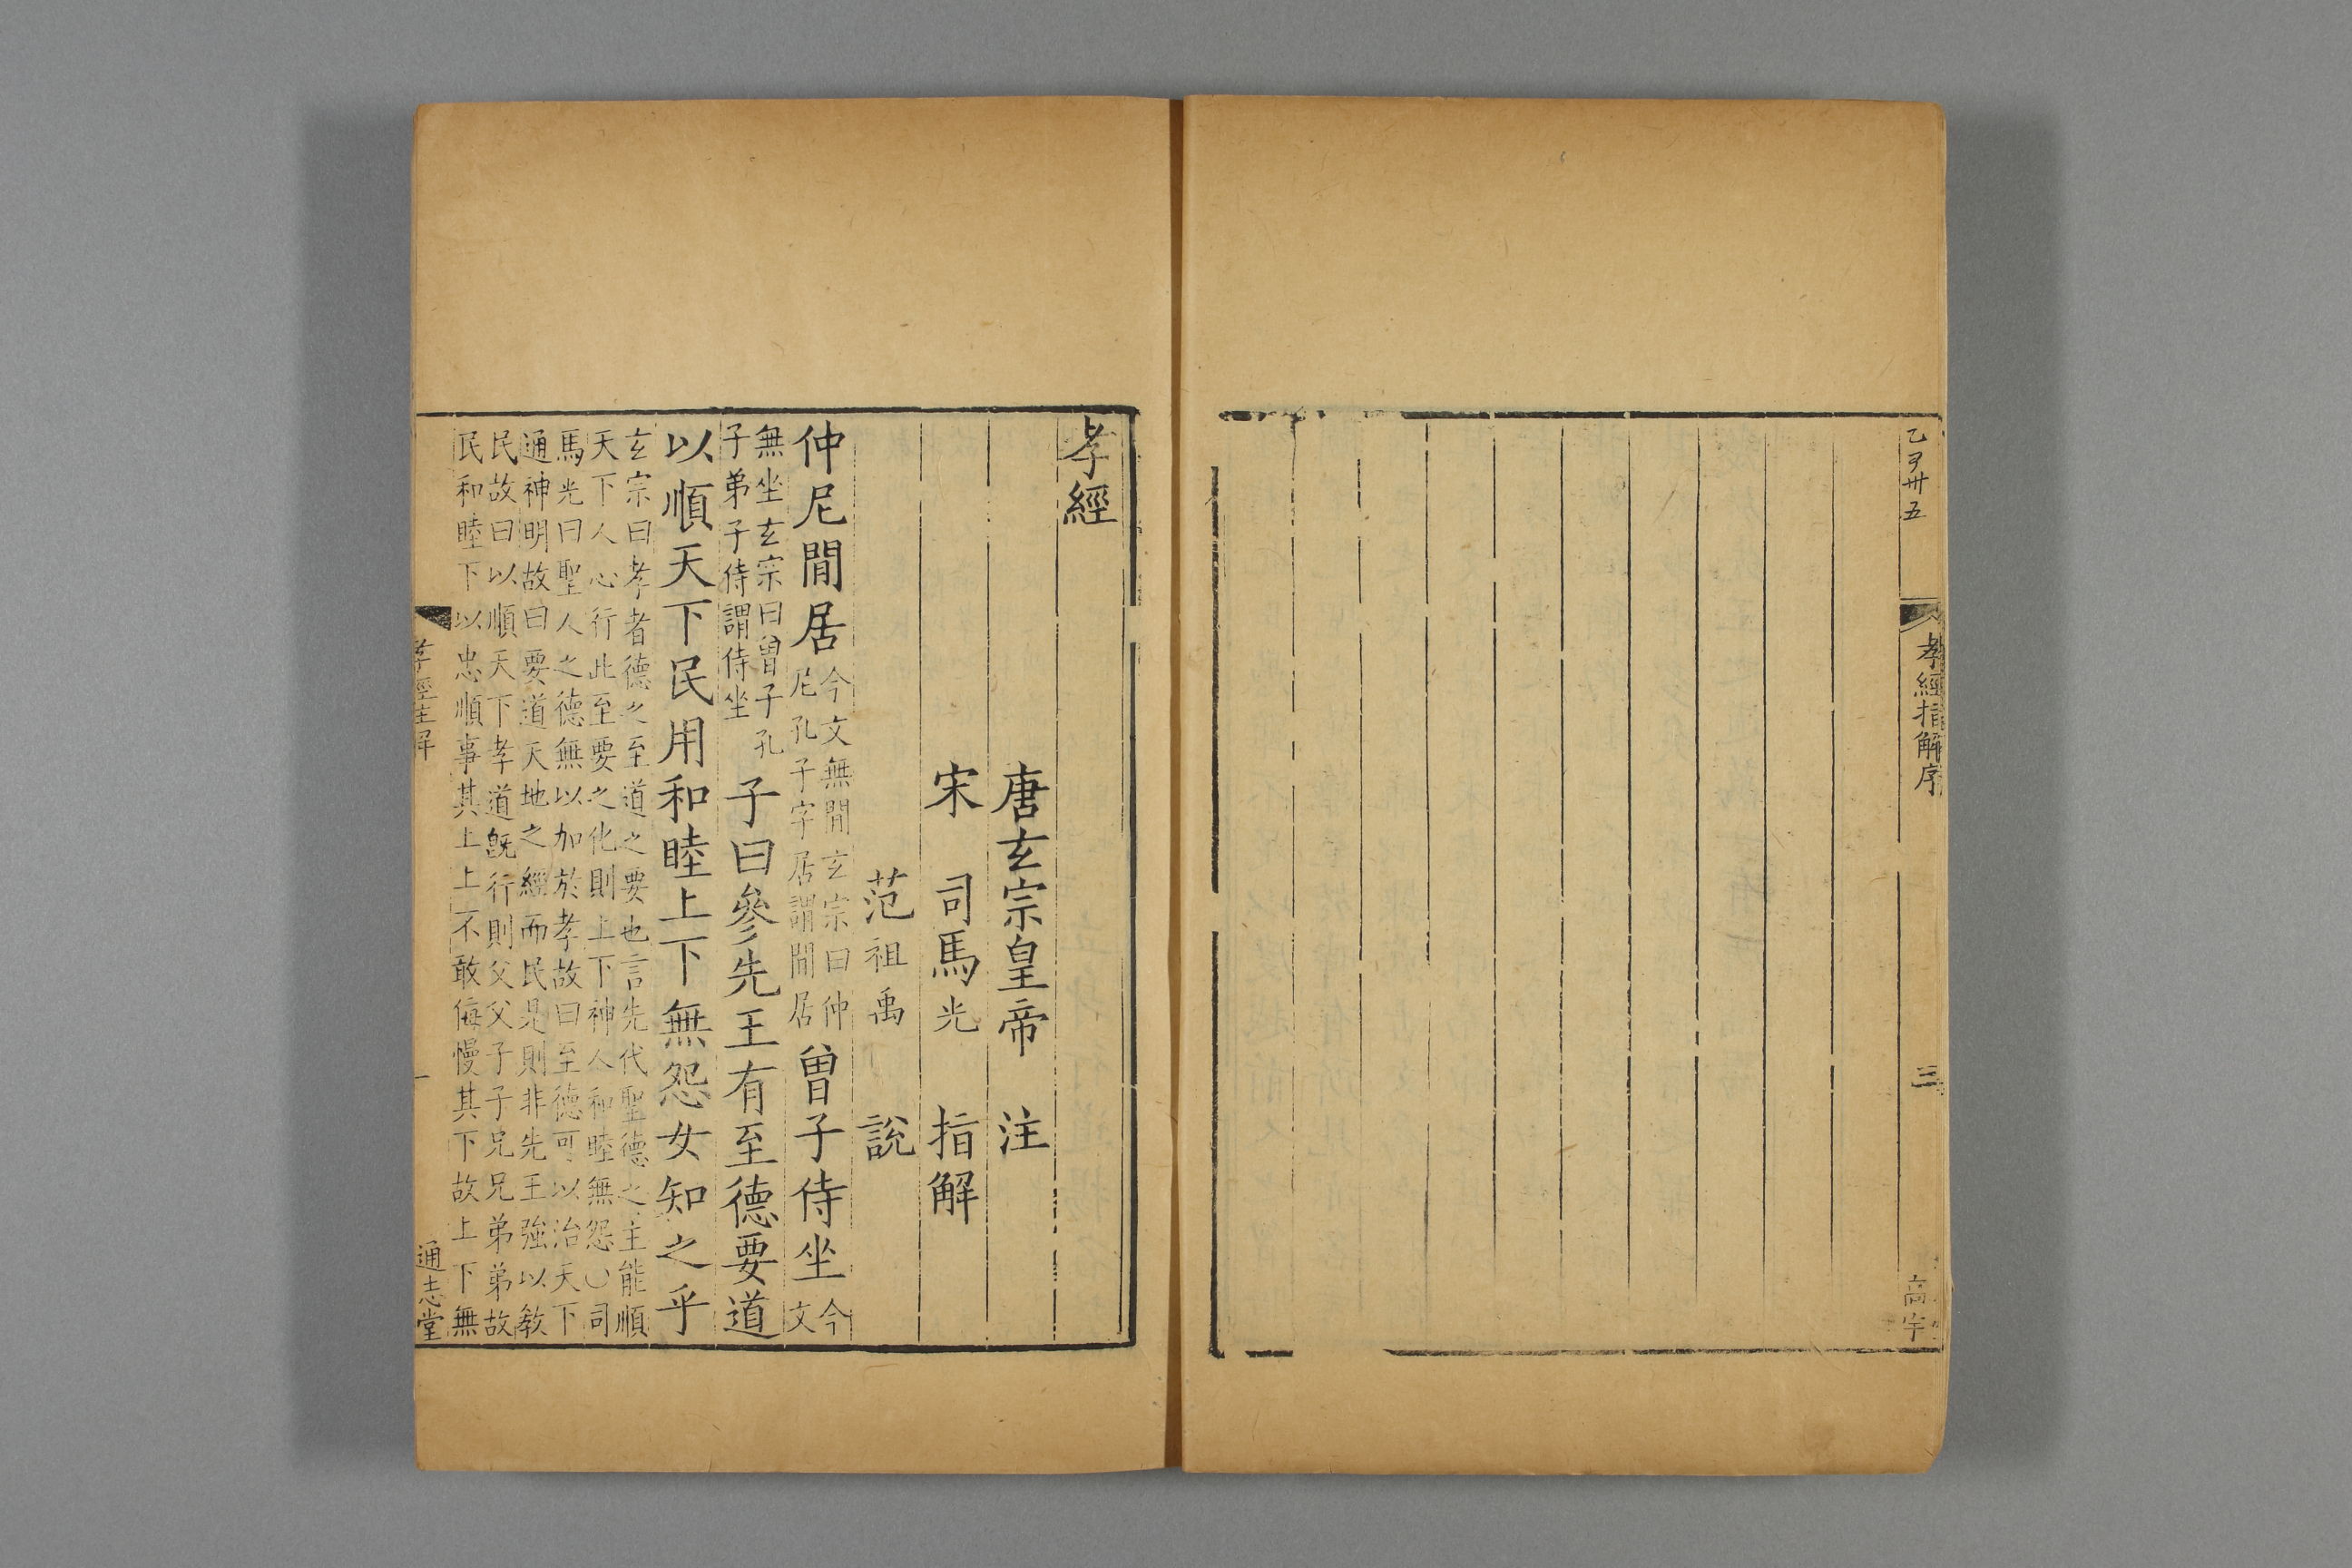 孝經指解序
三
高宇
孝經
唐玄宗皇帝 注
宋 司馬光 指解
范祖禹 說
仲尼閒居
今文無閒玄宗曰仲
尼孔子字居謂閒居
曾子侍坐
今
文
無坐玄宗曰曾子孔
子弟子侍謂侍坐
子曰參先王有至德要道
以順天下民用和睦上下無怨女知之乎
玄宗曰孝者德之至道之要也言先代聖德之主能順
天下人心行此至要之化則上下神人和睦無怨〇司
馬光曰聖人之德無以加於孝故曰至德可以治天下
通神明故曰要道天地之經而民是則非先王強以教
民故曰以順天下孝道旣行則父父子子兄兄弟弟故
民和睦下以忠順事其上上不敢侮慢其下故上下無
一
通志堂